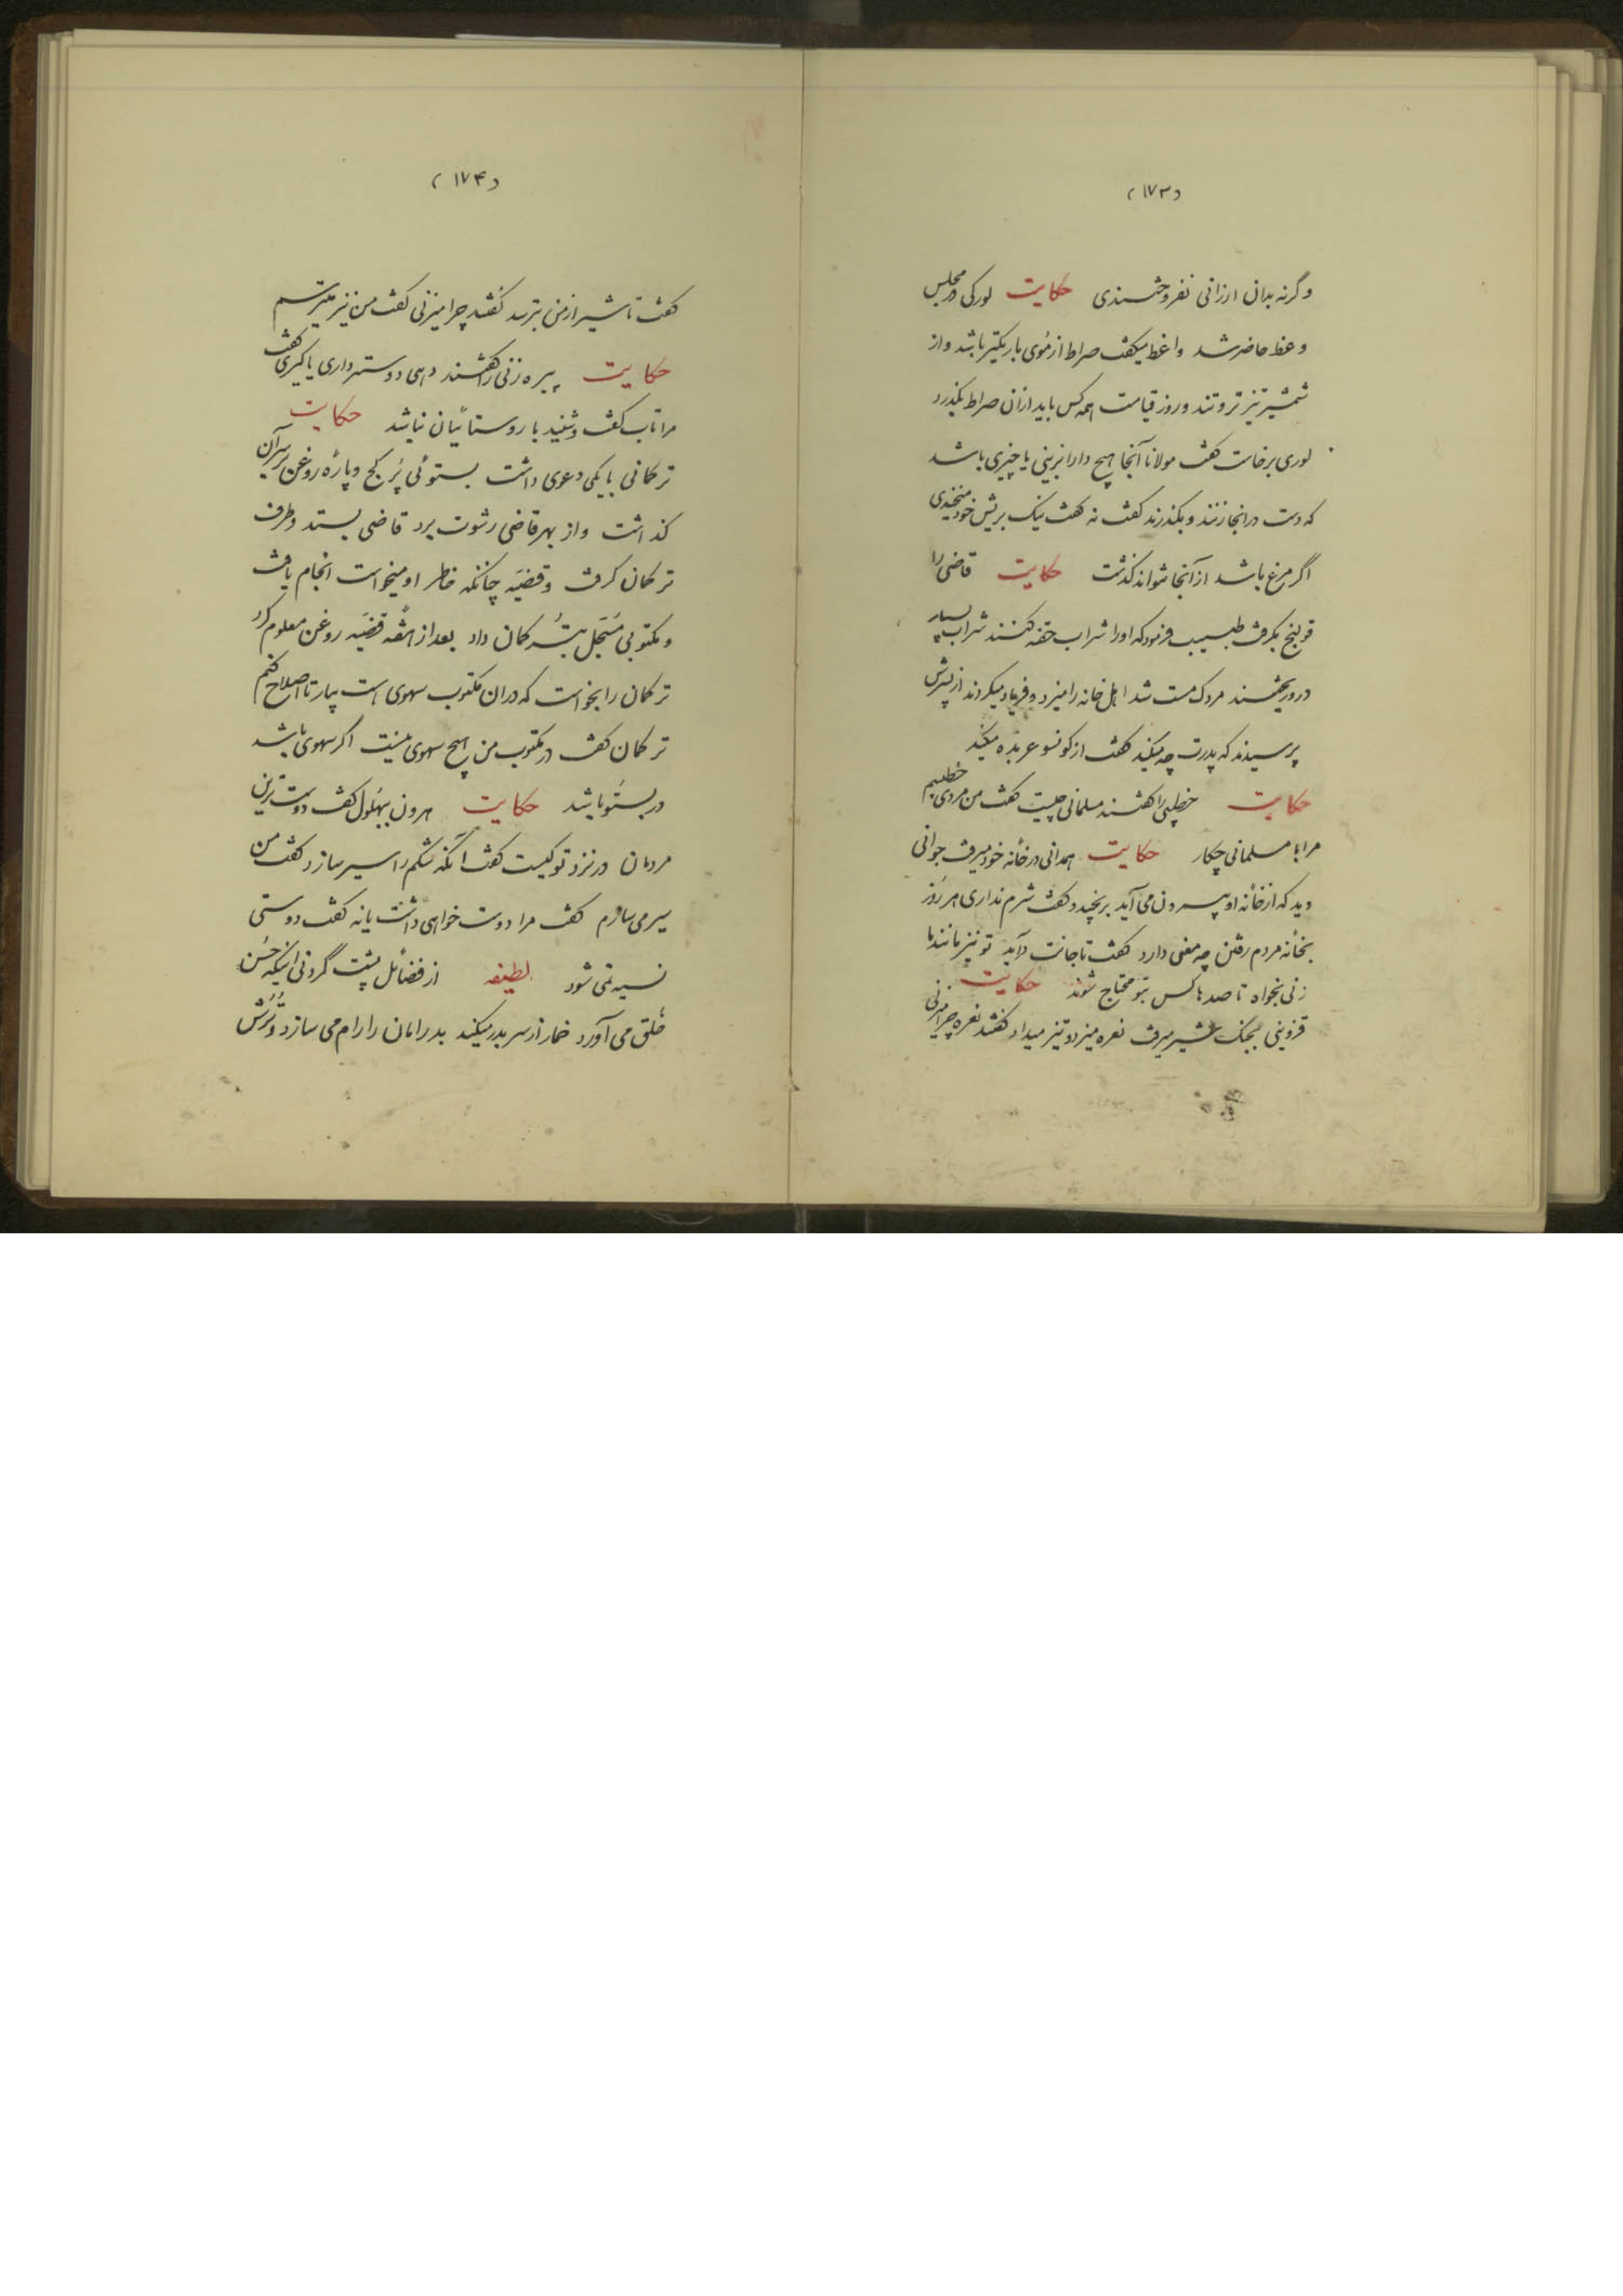 (۱۷۳)
وگرنه بدان ارزانی نفروختندی حکایت لورکی در مجلس
وعظ حاضر شد واعظ میگفت صراط از مُوی باریکتر باشد و از
شمشیر تیزتر و تند و روز قیامت همه کس باید ازان صراط بگذرد
لوری برخاست گفت مولانا آنجا هیچ دارابزینی یا چیزی باشد
که دست درانجا زنند و بگذرند گفت نه گفت نیک بریش خود میخندی
اگر مرغ باشد از آنجا نتواند گذشت حکایت قاضی را
قولنج بگرفت طبیب فرمود که اورا شراب حقنه کنند شراب بسیار
درو ریختند مردک مست شد اهل خانه را میزد و فریاد میکردند از پسرش
پرسیدند که پدرت چه میکند گفت از کونسو عربده میکند
حکایت خطیبی را گفتند مسلمانی چیست گفت من مردی خطیبم
مرا با مسلمانی چکار حکایت همدانی در خانه خود میرفت جوانی
دید که از خانه او بیرون می آید برنجید و گفت شرم نداری هر روز
بخانه مردم رفتن چه معنی دارد گفت تا جانت درآید تو نیز مانند ما
زنی بخواه تا صد ها کس بتو محتاج شوند حکایت
قزوینی بجنک شیر میرفت نعره میزد و تیز میداد گفتند نعره چرا میزنی
(۱۷۴)
گفت تا شیر از من بترسد گفتند چرا میزنی گفت من نیز میترسم
حکایت پیره زنی را گفتند دهی دوستر داری یا کیری گفت
مرا تاب گفت و شنید با روستائیان نباشد حکایت
ترکمانی با یکی دعوی داشت بستوئی پُر گچ و پارهٔ روغن بر سر آن
گذاشت و از بهر قاضی رشوت برد قاضی بستد و طرف
ترکمان گرفت و قضیّه چنانکه خاطر او میخواست انجام یافت
و مکتوبی مُسَجّل بتُرکمان داد بعد از هفته قضیّه روغن معلوم کرد
ترکمان را بخواست که دران مکتوب سهوی است بیار تا اصلاح کنم
ترکمان گفت در مکتوب من هیچ سهوی نیست اگر سهوی باشد
در بستُو باشد حکایت هرون ببهلُول گفت دوست ترین
مردمان در نزد تو کیست گفت آنکه شکم را سیر سازد گفت من
سیر می سازم گفت مرا دوست خواهی داشت یا نه گفت دوستی
نسیه نمی شود لطیفه از فضائل پشت گردنی اینکه حُسن
خُلق می آورد خمار از سر بدر میکند بدرامان را رام می سازد و تُرُش